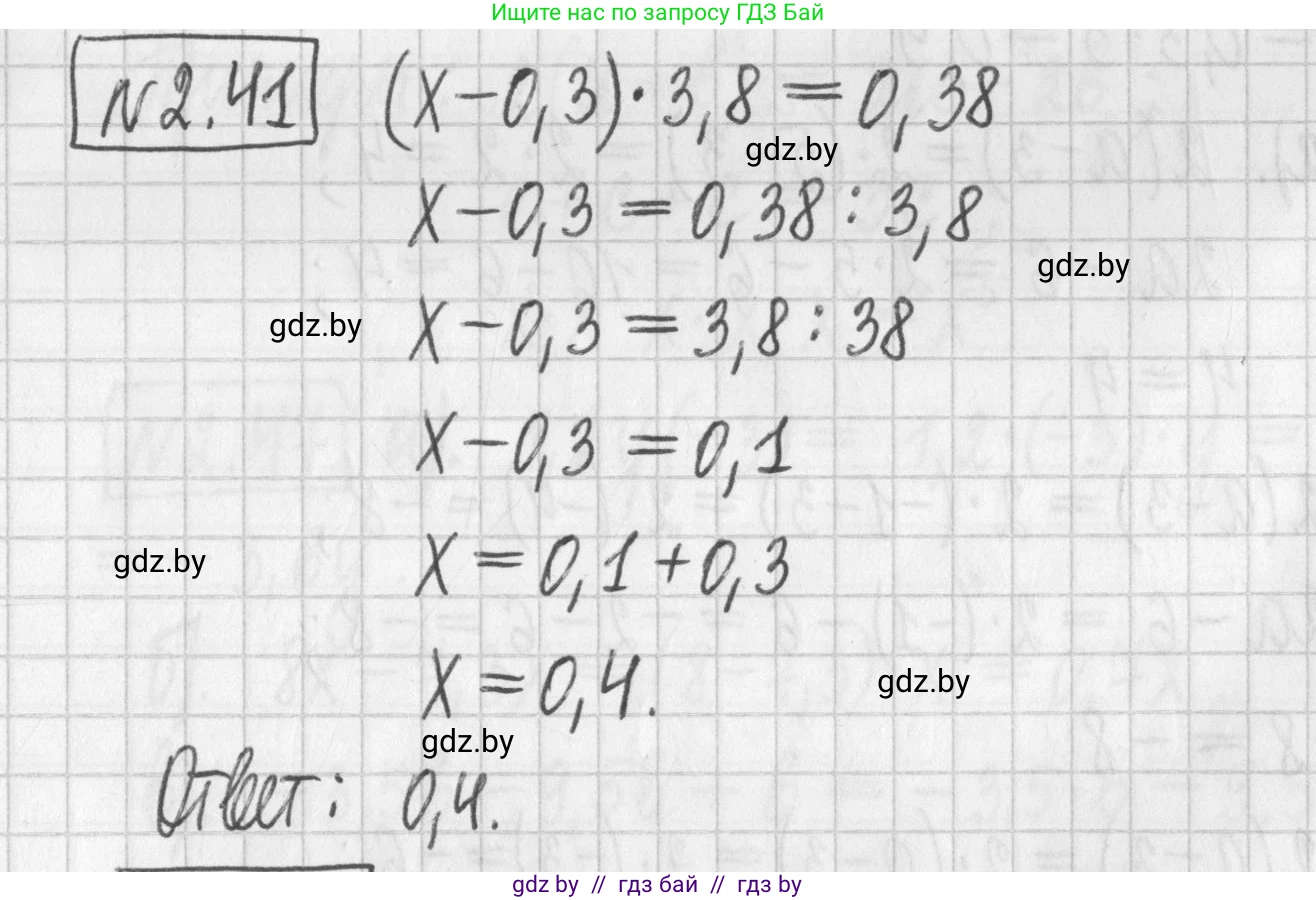 Ищите нас по запросу ГДЗ Бай
№2.41 (x-0,3)·3,8=0,38
gdz.by
x-0,3=0,38:3,8
gdz.by
gdz.by x-0,3=3,8:38
x-0,3=0,1
gdz.by x=0,1+0,3
x=0,4.
gdz.by
gdz.by
Ответ: 0,4.
gdz by // гдз бай // гдз by